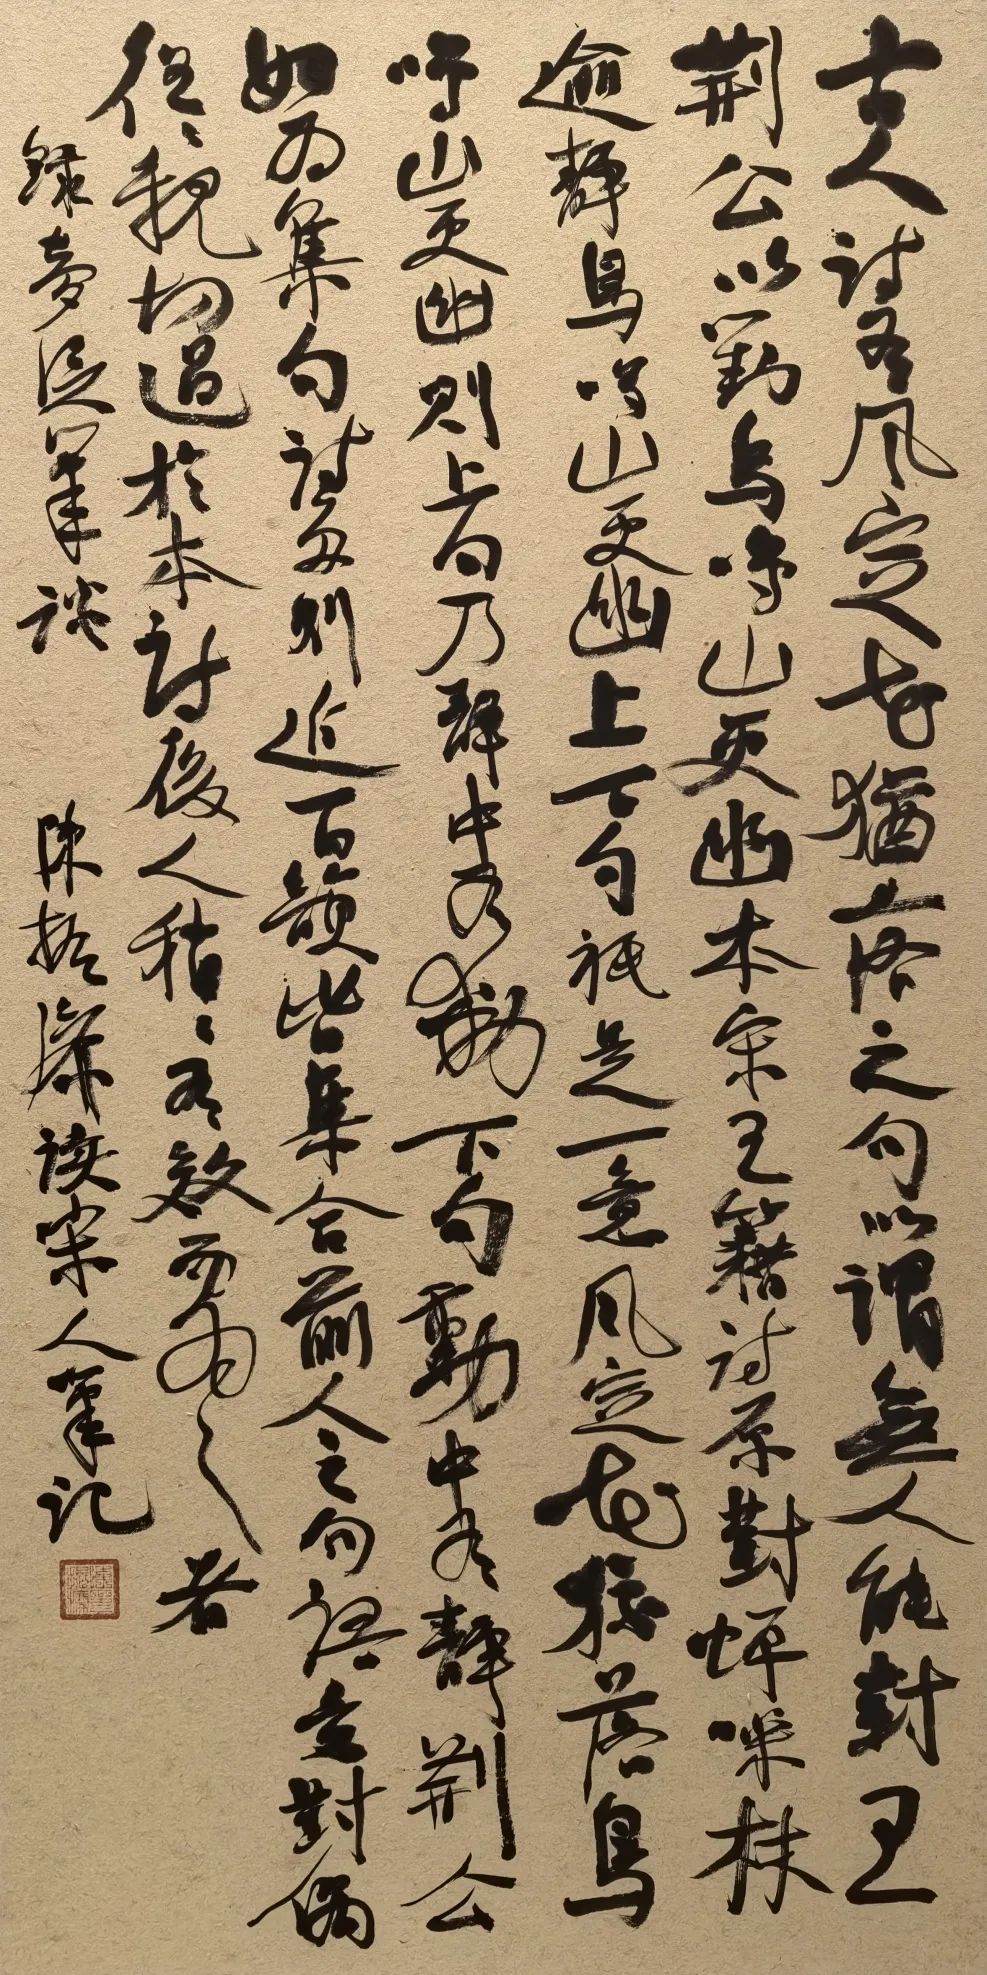 古人詩有風定花猶落之句以謂無人能對王
荊公以對鳥鳴山更幽本宋王籍詩原對蟬噪林
逾靜鳥鳴山更幽上下句祇是一意風定花猶落鳥
鳴山更幽則上句乃靜中有動下句動中有靜荊公
始為集句詩多則近百韻皆集合前人之句語意對偶
往々親切過於本詩後人稍々有效而為之者
錄夢溪筆談 陳振濂讀宋人筆記